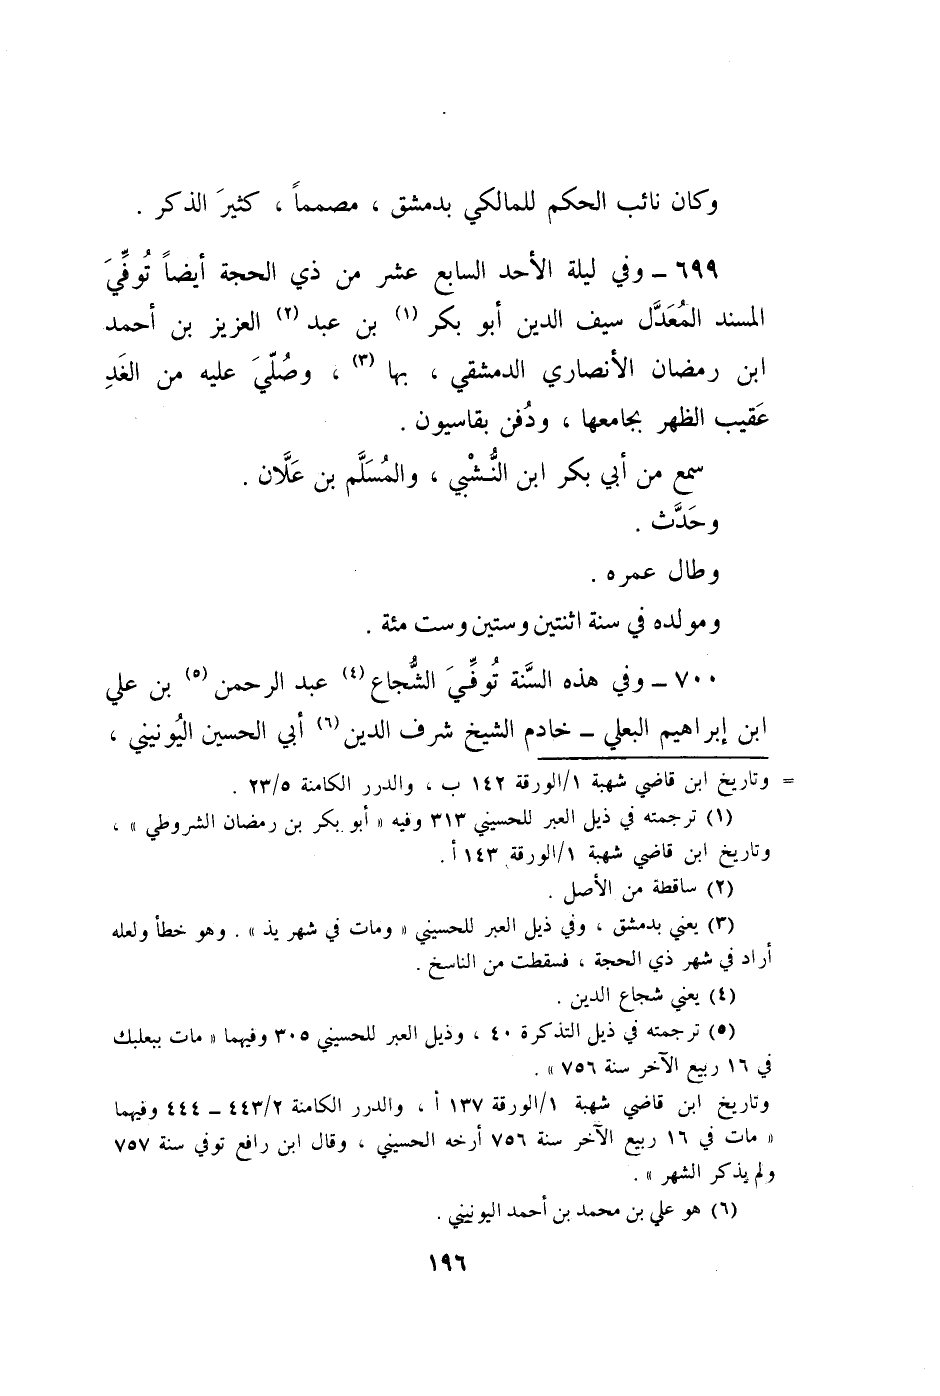 وكان نائب الحكم للمالكي بدمشق ، مصمماً ، كثيرَ الذكر .
٦٩٩ ـ وفي ليلة الأحد السابع عشر من ذي الحجة أيضاً تُوفِّيَ
المسند المُعَدَّل سيف الدين أبو بكر (١) بن عبد (٢) العزيز بن أحمد
ابن رمضان الأنصاري الدمشقي ، بها (٣) ، وصُلّيَ عليه من الغَدِ
عَقيب الظهر بجامعها ، ودُفن بقاسيون .
سمع من أبي بكر ابن النُّشْبي ، والمُسَلَّم بن عَلَّان .
وحَدَّث .
وطال عمره .
ومولده في سنة اثنتين وستين وست مئة .
٧٠٠ ـ وفي هذه السَّنة تُوفِّيَ الشُّجاع (٤) عبد الرحمن (٥) بن علي
ابن إبراهيم البعلي ـ خادم الشيخ شرف الدين (٦) أبي الحسين اليُونيني ،
= وتاريخ ابن قاضي شهبة ١/الورقة ١٤٢ ب ، والدرر الكامنة ٢٣/٥ .
(١) ترجمته في ذيل العبر للحسيني ٣١٣ وفيه « أبو بكر بن رمضان الشروطي » ،
وتاريخ ابن قاضي شهبة ١/الورقة ١٤٣ أ .
(٢) ساقطة من الأصل .
(٣) يعني بدمشق ، وفي ذيل العبر للحسيني « ومات في شهر يذ » . وهو خطأ ولعله
أراد في شهر ذي الحجة ، فسقطت من الناسخ .
(٤) يعني شجاع الدين .
(٥) ترجمته في ذيل التذكرة ٤٠ ، وذيل العبر للحسيني ٣٠٥ وفيهما « مات ببعلبك
في ١٦ ربيع الآخر سنة ٧٥٦ » .
وتاريخ ابن قاضي شهبة ١/الورقة ١٣٧ أ ، والدرر الكامنة ٤٤٣/٢ ـ ٤٤٤ وفيهما
« مات في ١٦ ربيع الآخر سنة ٧٥٦ أرخه الحسيني ، وقال ابن رافع توفي سنة ٧٥٧
ولم يذكر الشهر » .
(٦) هو علي بن محمد بن أحمد اليونيني .
١٩٦